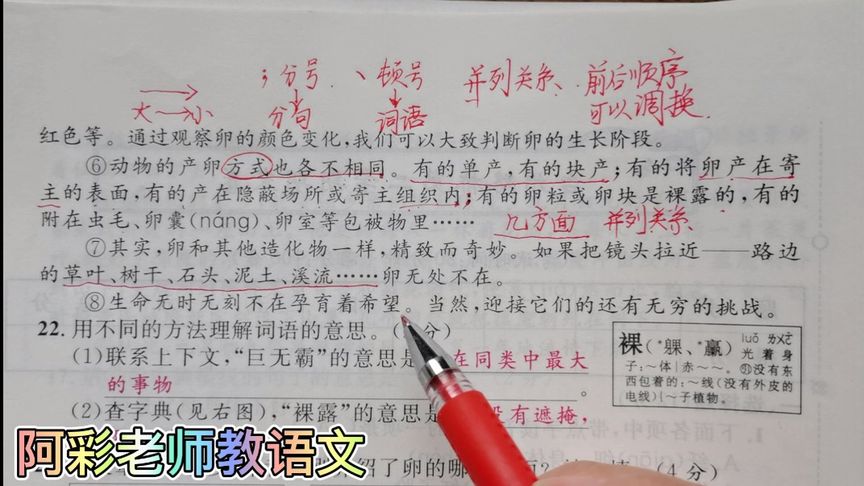 ；分号 、顿号 并列关系、前后顺序
大→小 分句 词语 可以调换.
红色等。通过观察卵的颜色变化,我们可以大致判断卵的生长阶段。
⑥动物的产卵方式也各不相同。有的单产,有的块产;有的将卵产在寄
主的表面,有的产在隐蔽场所或寄主组织内;有的卵粒或卵块是裸露的,有的
附在虫毛、卵囊(náng)、卵室等包被物里…… 几方面 并列关系
⑦其实,卵和其他造化物一样,精致而奇妙。如果把镜头拉近——路边
的草叶、树干、石头、泥土、溪流……卵无处不在。
⑧生命无时无刻不在孕育着希望。当然,迎接它们的还有无穷的挑战。
22.用不同的方法理解词语的意思。( 分)
(1)联系上下文,“巨无霸”的意思是 在同类中最大
的事物 。
(2)查字典(见右图),“裸露”的意思是 没有遮掩,
裸(*躶、*臝) luǒ ㄌㄨㄛˇ
光着身
子:~体|赤~~。㊁没有东
西包着的:~线(没有外皮的
电线)|~子植物。
绍了卵的哪 (4分)
阿彩老师教语文